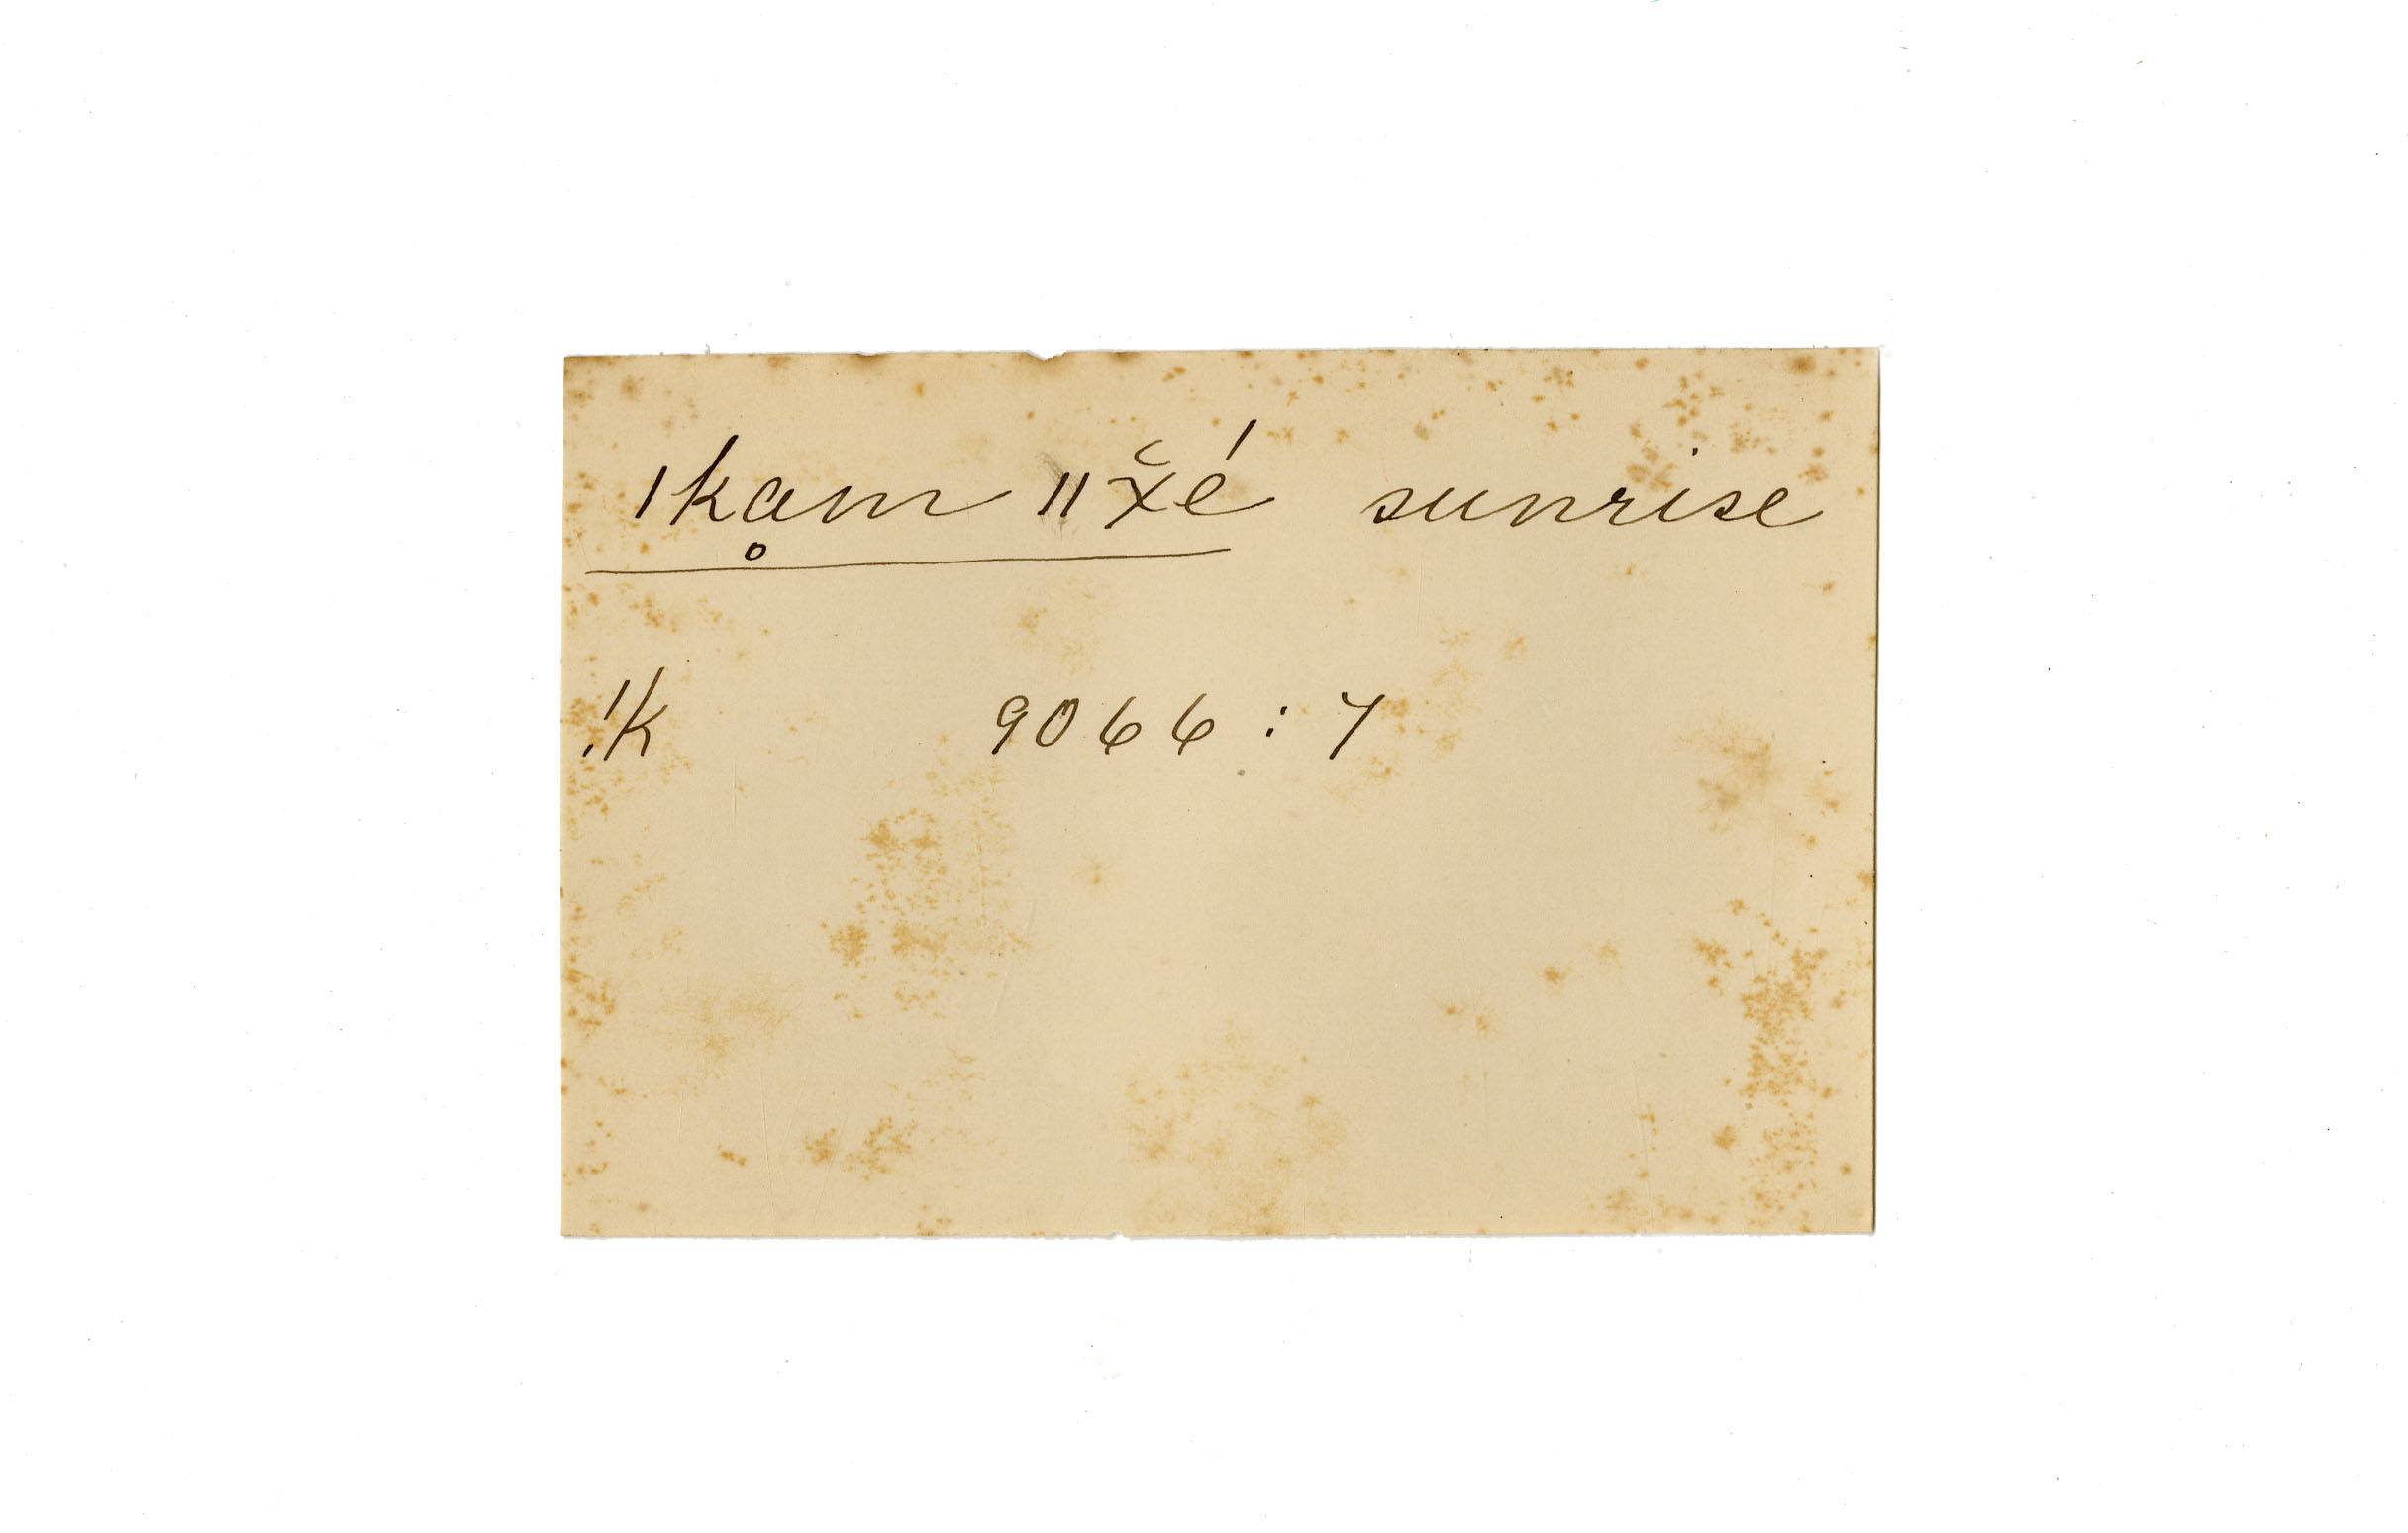 ǀkḁm ǁx̆é sunrise
!k 9066 : 7